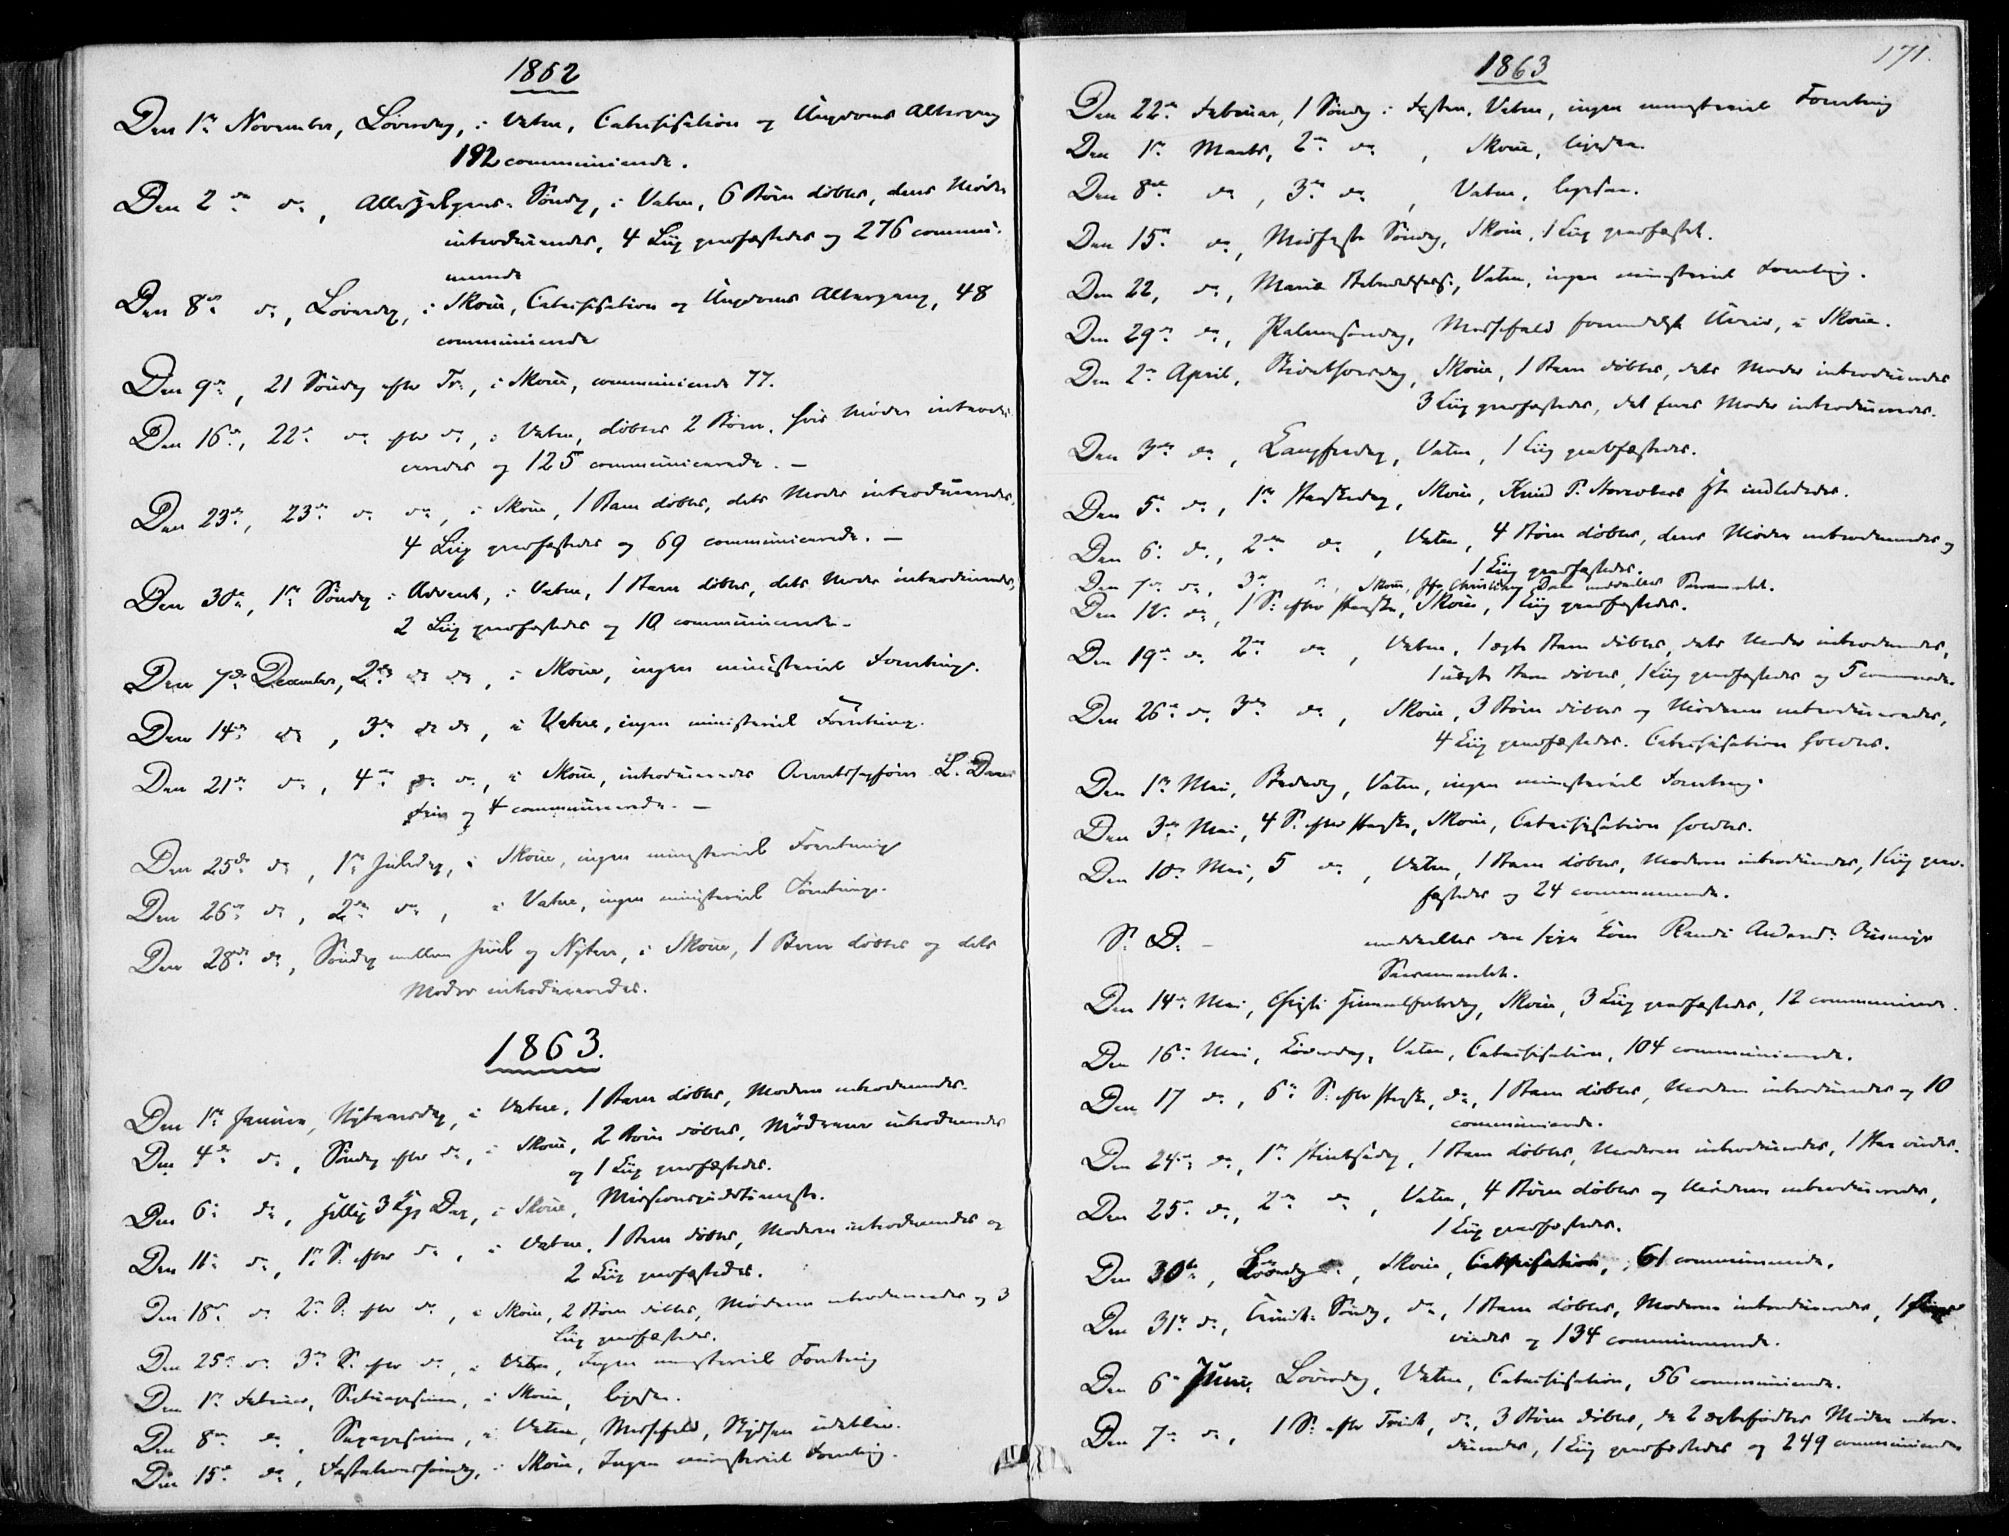 1862
Den 1ste November, Løverdag, i Vatne, Catechisation og Ungdoms Altergang
192 communicerende.
Den 2den do, Allehelgens Søndag, i Vatne, 6 Børn døbtes, deres Mødre
introduceredes, 4 Liig jordfæstedes og 276 commu-
nicerende
Den 8de do, Løverdag, i Skoue, Catechisation og Ungdoms Altergang, 48
communicerende
Den 9de, 21 Søndag efter Tr., i Skoue, communicerende 77.
Den 16de, 22de do efter do, i Vatne, døbtes 2 Børn, hvis Mødre introdu-
ceredes og 125 communicerende. –
Den 23de, 23de do do, i Skoue, 1 Barn døbtes, dets Moder introduceredes,
4 Liig jordfæstedes og 69 communicerende. –
Den 30te, 1ste Søndag i Advent, i Vatne, 1 Barn døbtes, dets Moder introduceredes,
2 Liig jordfæstedes og 10 communicerende –
Den 7de December, 2den do do, i Skoue, ingen ministeriel Forretning.
Den 14de do, 3die do do, i Vatne, ingen ministeriel Forretning.
Den 21de do, 4de do do, i Skoue, introduceredes L.
og 4 communicerende. –
Den 25de do, 1ste Juledag, i Skoue, ingen ministeriel Forretning
Den 26de do, 2den do, i Vatne, ingen ministeriel Forretning.
Den 28de do, Søndag mellem Juul og Nytaar, i Skoue, 1 Barn døbtes og dets
Moder introduceredes.
1863.
Den 1ste Januar, Nytaarsdag, i Vatne, 1 Barn døbtes, Moderen introduceredes.
Den 4de do, Søndag efter do, i Skoue, 2 Børn døbtes, Mødrene introduceredes
og 1 Liig jordfæstedes.
Den 6te do, Hellig 3 Kgs Dag, i Skoue, Missionsgudstjeneste.
Den 11te do, 1ste S. efter do, i Vatne, 1 Barn døbtes, Moderen introduceredes og
2 Liig jordfæstedes.
Den 18de do 2den S. efter do, i Skoue, 2 Børn døbtes, Mødrene introduceredes og 3
Liig jordfæstedes.
Den 25de do 3die S. efter do, i Vatne, Ingen ministeriel Forretning
Den 1ste Februar, Septuagesima, i Skoue, ligesaa.
Den 8de do, Sexagesima, i Vatne, Messefald, Skydsen udeblev.
Den 15de do, Fastelavnssøndag, i Skoue, Ingen ministeriel Forretning.
171.
1863
Den 22de Februar, 1 Søndag i Fasten, Vatne, ingen ministeriel Forretning
Den 1ste Marts, 2den do, Skoue, ligesaa.
Den 8de do, 3die do, Vatne, ligesaa.
Den 15de do, Midfaste Søndag, Skoue, 1 Liig jordfæstet.
Den 22, do, Mariæ Bebudelses, Vatne, ingen ministeriel Forretning.
Den 29de do, Palmesøndag, Messefald formedelst Uveir, i Skoue.
Den 2den April, Skjærthorsdag, Skoue, 1 Barn døbtes, dets Moder introduceredes
3 Liig jordfæstedes, det Moder introduceredes.
Den 3die do, Langfredag, Vatne, 1 Liig jordfæstedes.
Den 5te do, 1ste Paaskedag, Skoue, indlededes.
Den 6te do, 2den do, Vatne, 4 Børn døbtes, deres Mødre introduceredes og
1 Liig jordfæstedes.
Den 7de do, 3die do, Skoue, meddeltes Sacramentet.
Den 12. do, 1 S. efter Paaske, Skoue, 1 Liig jordfæstedes.
Den 19de do 2den do, Vatne, 1 ægte Barn døbtes, dets Moder introduceredes,
1 uægte Barn døbtes, 1 Liig jordfæstedes og 5 communicerende.
Den 26de do 3die do, Skoue, 3 Børn døbtes og Mødrene introduceredes,
4 Liig jordfæstedes. Catechisation holdtes.
Den 1ste Mai, Bededag, Vatne, ingen ministeriel Forretning.
Den 3die Mai, 4 S. efter Paaske, Skoue, Catechisation holdtes.
Den 10de Mai, 5 do, Vatne, 1 Barn døbtes, Moderen introduceredes, 1 Liig jord-
fæstedes og 24 communicerende.
S. D. – meddeltes den syge Randi
Sacramentet.
Den 14de Mai, Christi Himmelfartsdag, Skoue, 3 Liig jordfæstedes, 12 communicerende.
Den 16de Mai, Løverdag, Vatne, Catechisation, 104 communicerende.
Den 17 do, 6te S. efter Paaske, do, 1 Barn døbtes, Moderen introduceredes og 10
communicerende.
Den 24de do, 1ste Pintsedag, 1 Barn døbtes, Moderen introduceredes, 1 Par viedes.
Den 25de do, 2den do, Vatne, 4 Børn døbtes og Mødrene introduceredes,
1 Liig jordfæstedes.
Den 30te, Løverdag, Skoue, Catechisation, 61 communicerende.
Den 31te do, Trinit. Søndag, do, 1 Barn døbtes, Moderen introduceredes, 1
viedes og 134 communicerende.
Den 6te Juni, Løverdag, Vatne, Catechisation, 56 communicerende.
Den 7de do, 1 S. efter Trinit., do, 3 Børn døbtes, de 2 ægtefødtes Mødre intro-
duceredes, 1 Liig jordfæstedes og 249 communicerende